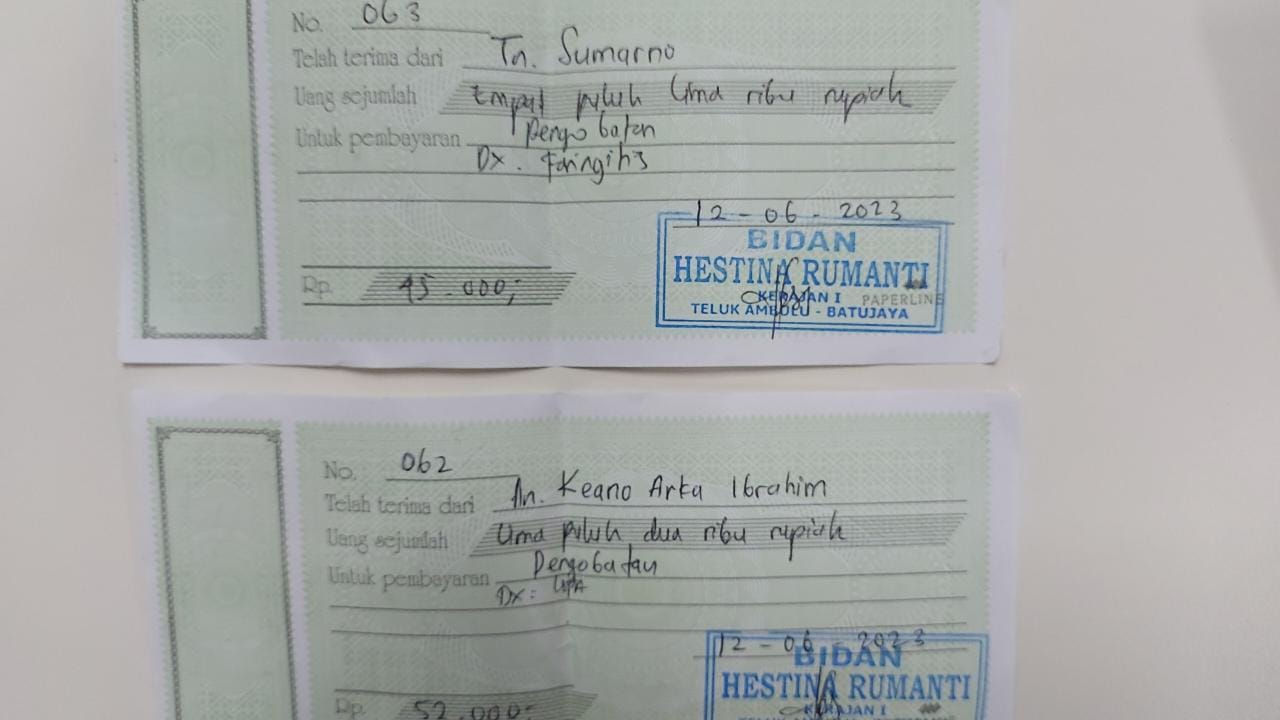 No. 063
Telah terima dari Tn. Sumarno
Uang sejumlah Empat puluh lima ribu rupiah
Untuk pembayaran Pengobatan
Dx. Faringitis
12 - 06 - 2023
BIDAN
HESTINA RUMANTI
KERAJAN I PAPERLINE
TELUK AMBULU - BATUJAYA
Rp. 45.000,-
No. 062
Telah terima dari An. Keano Arka Ibrahim
Uang sejumlah Lima puluh dua ribu rupiah
Untuk pembayaran Pengobatan
Dx:
12 - 06 - 2023
BIDAN
HESTINA RUMANTI
KERAJAN I
Rp. 52.000,-